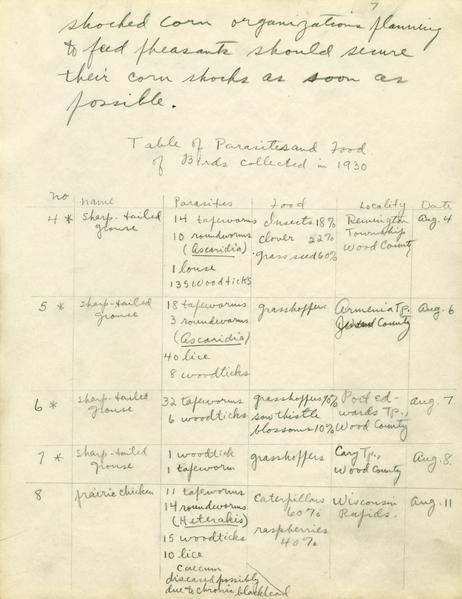 7
shocked corn organizations planning
to feed pheasants should secure
their corn shocks as soon as
possible.
Table of Parasites and Food
of Birds collected in 1930
no name Parasities Food Locality Date
4 * Sharp-tailed grouse
14 tapeworms
10 roundworms
(Ascaridia)
1 louse
135 woodticks
Insects 18%
clover 22%
grass seed 60%
Remington
Township
Wood County
Aug. 4
5 * Sharp-tailed
grouse
18 tapeworms
3 roundworms
(Ascaridia)
40 lice
8 woodticks
grasshoppers
Armenia Tp.
County
Aug. 6
6 * Sharp-tailed
grouse
32 tapeworms
6 woodticks
grasshoppers 90%
sow thistle
blossoms 10%
Port ed-
wards Tp.,
Wood County
Aug. 7
7 * Sharp-tailed
grouse
1 woodtick
1 tapeworm
grasshoppers
Cary Tp.,
Wood County
Aug. 8.
8 prairie chicken
11 tapeworms
14 roundworms
(Heterakis)
15 woodticks
10 lice
Caecum
diseased possibly
due to chronic blackhead
Caterpillars
60%
raspberries
40%
Wisconsin
Rapids.
Aug. 11